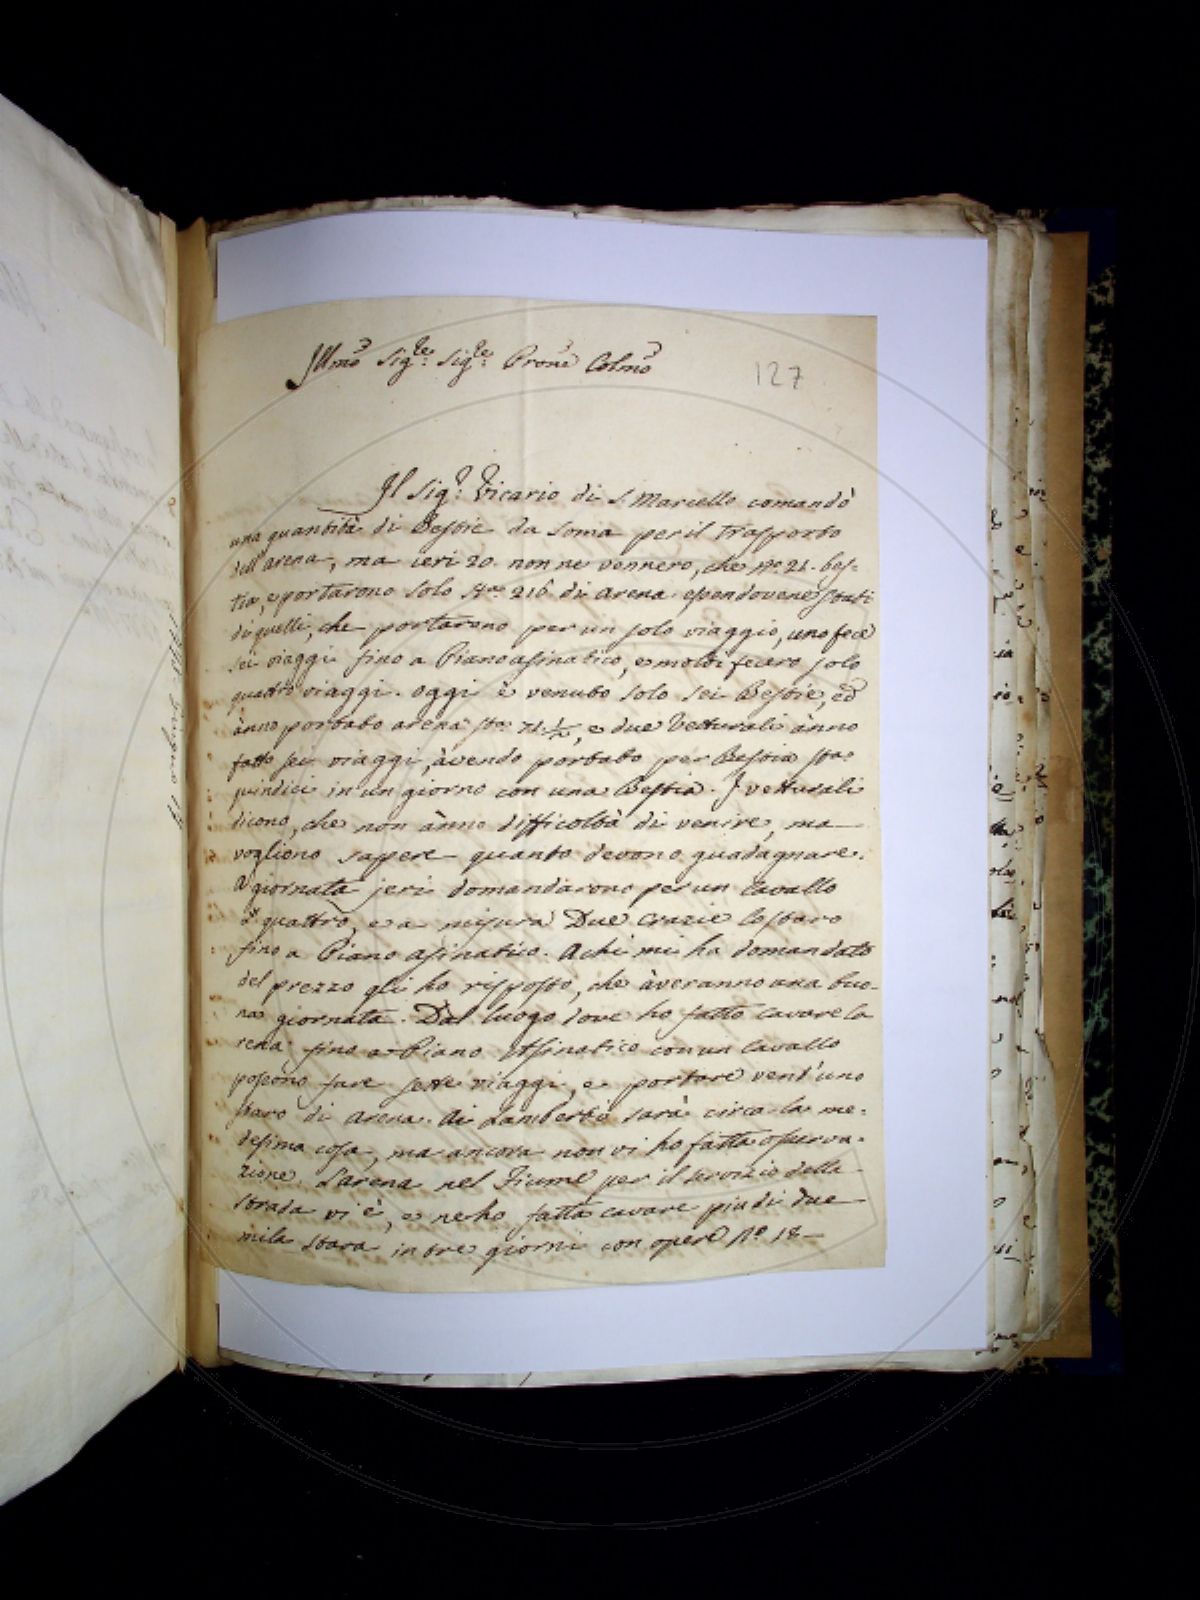 Illmo Sig.re Sig.re Prone Colmo
127
Il Sig.r Vicario di S. Marcello comandò
una quantità di Bestie da soma per il trasporto
dell'arena, ma ieri 20. non ne vennero, che No. 21. bes-
tie, e portarono solo sta 216 di arena essendovene stati
di quelli, che portarono per un solo viaggio, uno fece
sei viaggi fino a Pianoasinatico, e molti fecero solo
quattro viaggi. oggi è venuto solo sei Bestie, ed
ànno portato arena sta 71 1/2, e due Vetturali ànno
fatto sei viaggi, àvendo portato per Bestia sta
quindici in un giorno con una Bestia. I vetturali
dicono, che non ànno difficoltà di venire, ma
vogliono sapere quanto devono guadagnare.
A giornata jeri domandarono per un cavallo
quattro, e a misura Due Crazie lo staro
fino a Piano asinatico. A chi mi ha domandato
del prezzo gli ho risposto, che àveranno una buo-
na giornata. Dal luogo dove ho fatto cavare la
rena, fino a Piano Asinatico con un Cavallo
possono fare sette viaggi, e portare vent'uno
staro di arena. Ai Lamberti sarà circa la me-
desima cosa, ma ancora non vi ho fatta osserva-
zione. L'arena nel Fiume per il servizio della
strada vi è, e ne ho fatta cavare piu di due
mila stara in tre giorni con opere No. 18-